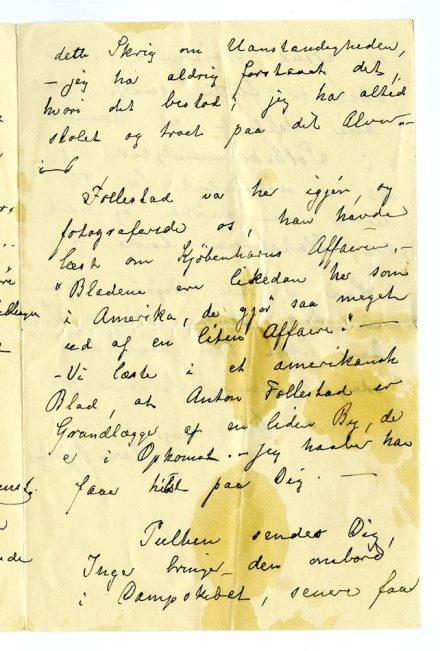 dette Skrig om Uanstændigheden,
– jeg har aldrig forstaaet det,
hvori det bestod, jeg har altid
stolet og troet paa dit Alvor. –
Follestad var her igjén, og
fotograferede os, han havde
læst om Kjöbenhavns Affæren. –
"Bladene ere ligedan her som
i Amerika, de gjör saa meget
ud af en liten Affære." –
– Vi læste i et amerikansk
Blad, at Anton Follestad er
Grundlægger af en liden By, de
er i Opkomst. – Jeg haaber han
faar hilst paa Dig. –
sendes Dig,
Inger bringer den ombord
i Dampskibet, senere faar